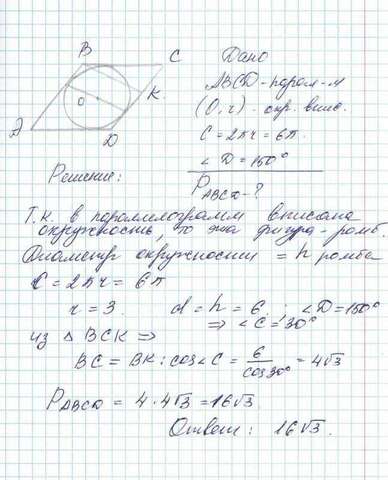 B
C
Дано
ABCD - парал-м
(O, r) - окр. впис.
C = 2πr = 6π.
∠D = 150°
P ABCD - ?
O
K
A
D
Решение:
Т.к. в параллелограмм вписана
окружность, то эта фигура - ромб.
Диаметр окружности = h ромба
C = 2πr = 6π
r = 3. d = h = 6 ; ∠D = 150°
⇒ ∠C = 30°
из △ BCK ⇒
BC = BK : cos∠C = 6/cos30° = 4√3
P ABCD = 4 · 4√3 = 16√3.
Ответ: 16√3.